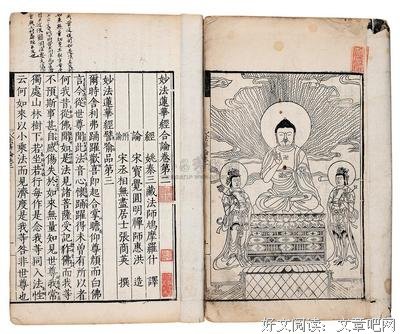 妙法蓮華經合論卷第二
經 姚秦三藏法師鳩摩羅什 譯
論 宋寶覺圓明禪師惠洪 造
附論 宋丞相無盡居士張商英 撰
妙法蓮華經譬喻品第三
爾時舍利弗踊躍歡喜即起合掌瞻仰尊顏而白佛
言今從世尊聞此法音心懷踊躍得未曾有所以者
何我昔從佛聞如是法見諸菩薩受記作佛而我等
不預斯事甚自感傷失於如來無量知見世尊我常
獨處山林樹下若坐若行每作是念我等同入法性
云何如來以小乘法而見濟度是我等咎非世尊也
好文阅读：文章吧网